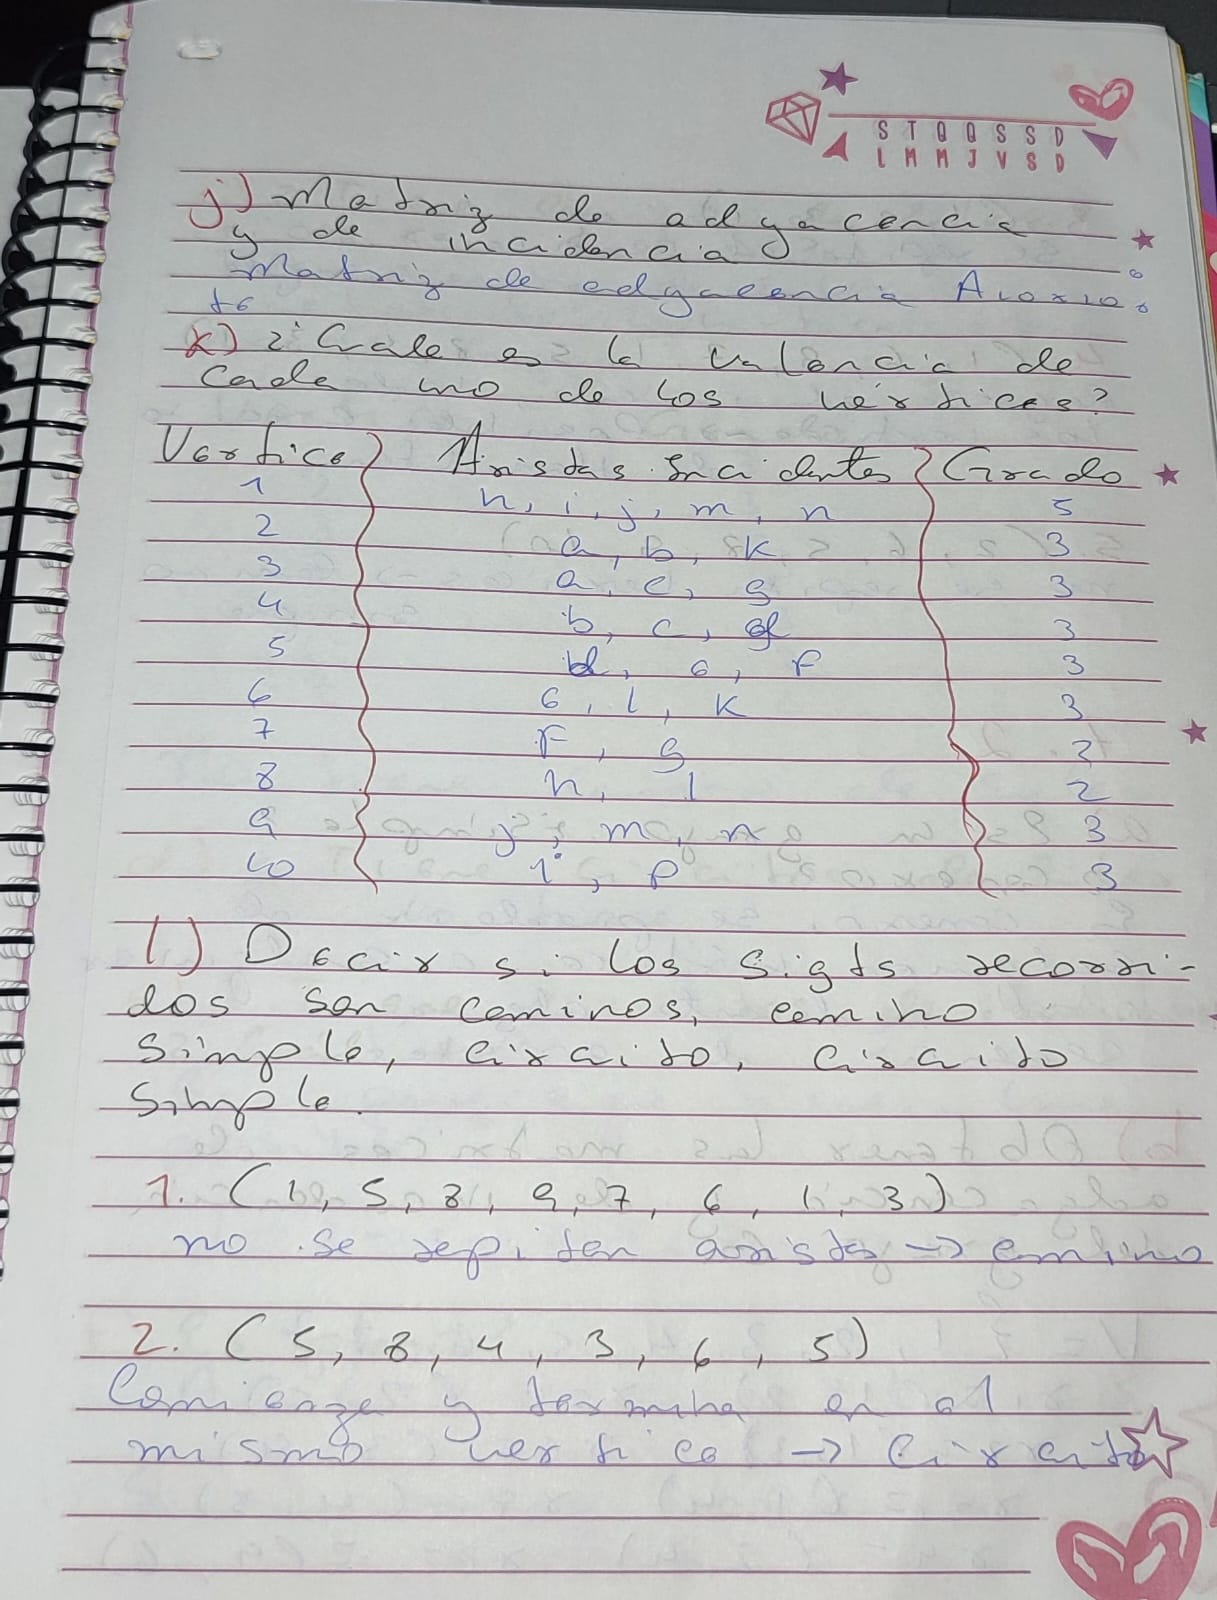 S T Q Q S S D
L M M J V S D
j) Matriz de adyacencia
y de incidencia
Matriz de adyacencia A10x10
k) ¿Cuale es la valencia de
cada uno de los vértices?
Vertice Aristas Incidentes Grado
1 h, i, j, m, n 5
2 a, b, k 3
3 a, c, g 3
4 b, c, d 3
5 d, e, f 3
6 e, l, k 3
7 f, g 2
8 h, l 2
9 j, m, n 3
10 i, p 3
l) Decir si los sigts recorri-
dos son caminos, camino
simple, circuito, circuito
simple.
1. (1, 5, 8, 9, 7, 6, 1, 3)
no se repiten aristas → camino
2. (5, 8, 4, 3, 6, 5)
Comienza y termina en el
mismo vertice → Circuito